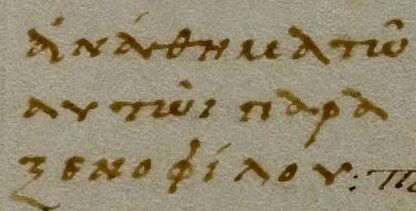 ἀνάθημα τῶ
αυτῶι παρὰ
ξενοφίλου: